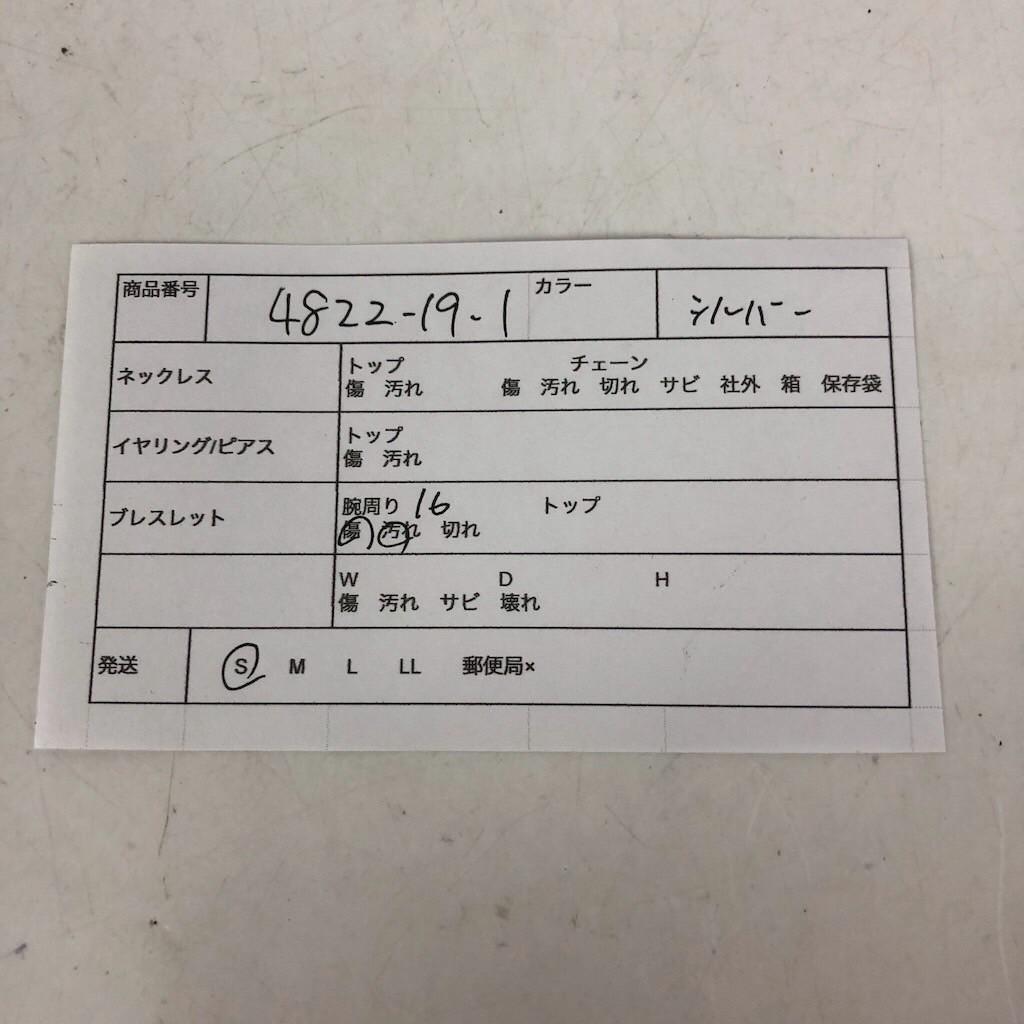 商品番号 4822-19-1 カラー シルバー
ネックレス トップ チェーン
傷 汚れ 傷 汚れ 切れ サビ 社外 箱 保存袋
イヤリング/ピアス トップ
傷 汚れ
ブレスレット 腕周り 16 トップ
傷 汚れ 切れ
W D H
傷 汚れ サビ 壊れ
発送 S M L LL 郵便局×